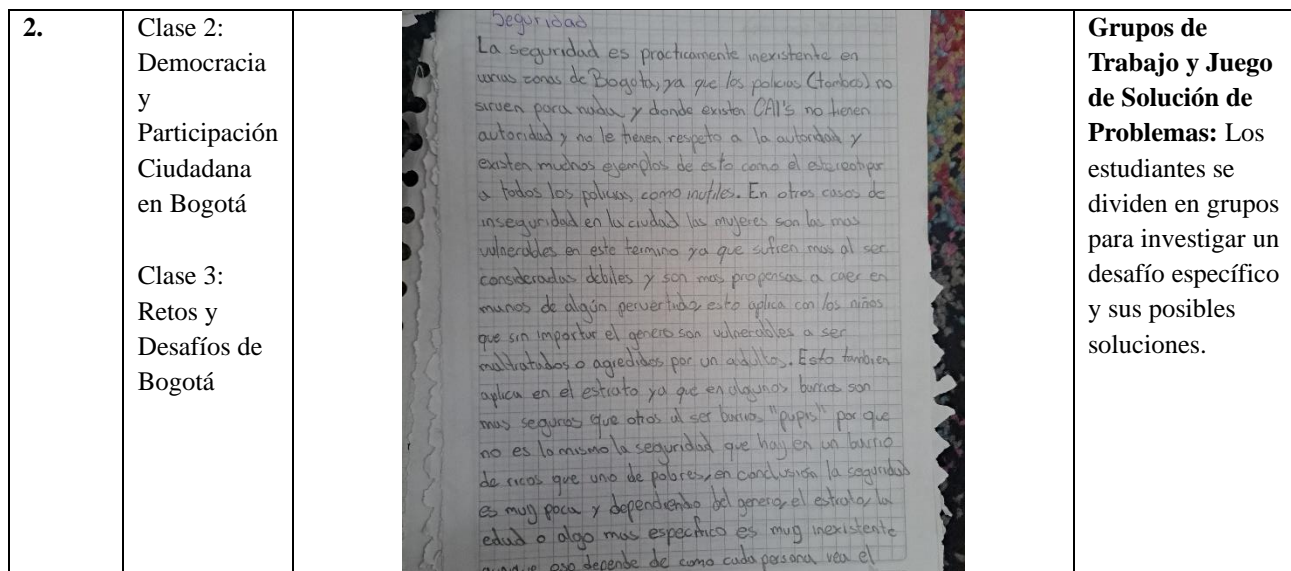 2.
Clase 2:
Democracia
y
Participación
Ciudadana
en Bogotá
Clase 3:
Retos y
Desafíos de
Bogotá
Seguridad
La seguridad es practicamente inexistente en
varias zonas de Bogota, ya que los policias (tombos) no
sirven para nada y donde existen CAI's no tienen
autoridad y no le tienen respeto a la autoridad y
existen muchos ejemplos de esto como el estereotipar
a todos los policias como inutiles. En otros casos de
inseguridad en la ciudad las mujeres son las mas
vulnerables en este termino ya que sufren mas al ser
consideradas debiles y son mas propensas a caer en
manos de algún pervertido, esto aplica con los niños
que sin importar el genero son vulnerables a ser
maltratados o agredidos por un adultos. Esto tambien
aplica en el estrato ya que en algunos barrios son
mas seguros que otros al ser barrios "pupis" por que
no es lo mismo la seguridad que hay en un barrio
de ricos que uno de pobres, en conclusión la seguridad
es muy poca y dependiendo del genero, el estrato, la
edad o algo mas especifico es muy inexistente
aunque eso depende de como cada persona vea el
Grupos de
Trabajo y Juego
de Solución de
Problemas: Los
estudiantes se
dividen en grupos
para investigar un
desafío específico
y sus posibles
soluciones.